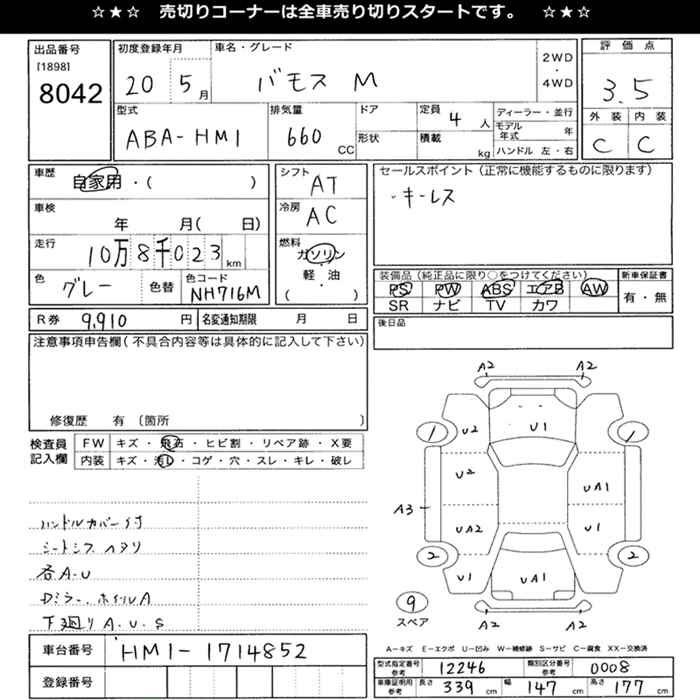 ☆★☆ 売切りコーナーは全車売り切りスタートです。 ☆★☆
出品番号
[1898]
8042
初度登録年月
20 5月
車名・グレード
バモス M
2WD
・
4WD
評価点
3.5
外装 内装
C C
型式
ABA-HM1
排気量
660 CC
ドア
形状
定員 4 人
積載 kg
ディーラー・並行
モデル年式 年
ハンドル 左・右
車歴
自家用・( )
車検
年 月( 日)
走行
10万8千023 km
色
グレー
色替
色コード
NH716M
シフト
AT
冷房
AC
燃料
ガソリン
・
軽・油
( )
セールスポイント(正常に機能するものに限ります)
・キーレス
装備品(純正品に限り○をつけてください)
PS PW ABS エアB AW
SR ナビ TV カワ
新車保証書
有・無
R券 9,910 円
名変通知期限 月 日
後日品
注意事項申告欄(不具合内容等は具体的に記入して下さい)
修復歴 有 〔箇所 〕
検査員
記入欄
FW キズ・飛石・ヒビ割・リペア跡・X要
内装 キズ・汚レ・コゲ・穴・スレ・キレ・破レ
ハンドルカバー付
シートシミ ヘタリ
各A・U
Dミラー、ホイルA
下廻りA、U、S
A2 A2
1 U2 U1 1
U2 UA1
A3
UA2 U1
2 U1 UA1 2
9
スペア
A2 A2
A-キズ E-エクボ U-凹み W-補修跡 S-サビ C-腐食 XX-交換済
車台番号
HM1-1714852
登録番号
型式指定番号
参考
12246
類別区分番号
参考
0008
車庫証明用
参考
長さ 339 cm
幅 147 cm
高さ 177 cm